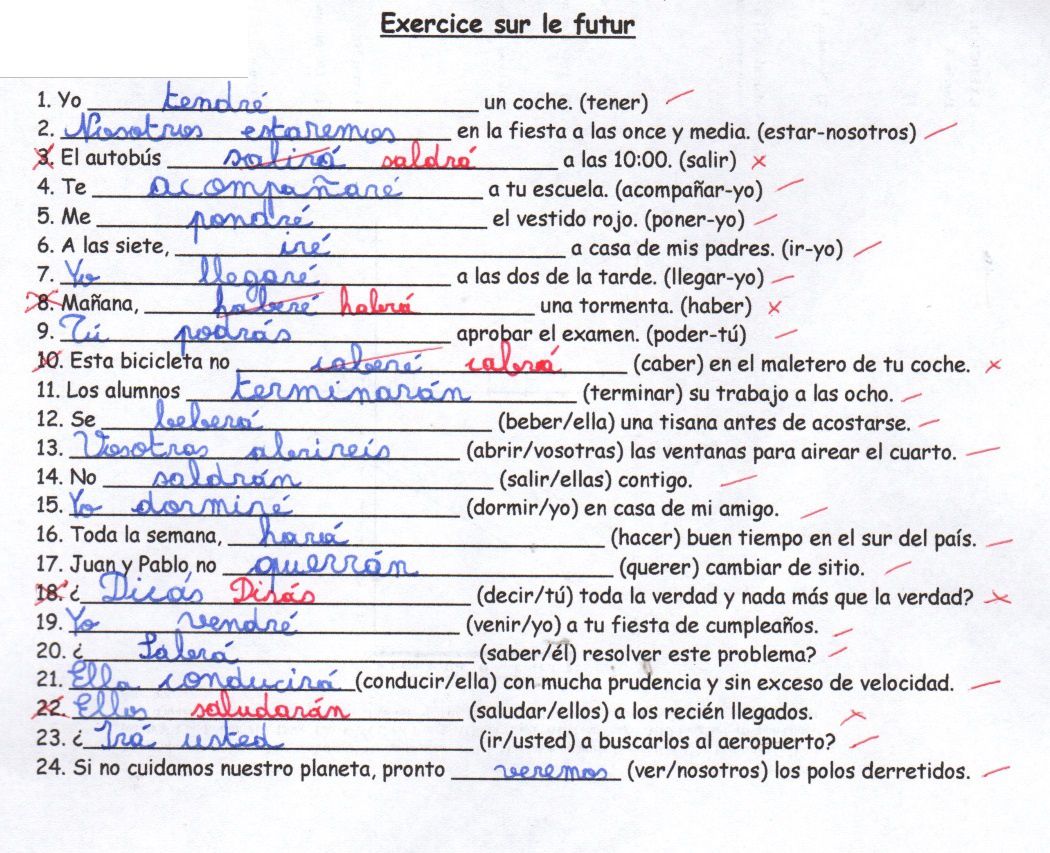 Exercice sur le futur
1. Yo tendré un coche. (tener)
2. Nosotros estaremos en la fiesta a las once y media. (estar-nosotros)
3. El autobús salirá saldrá a las 10:00. (salir) x
4. Te acompañaré a tu escuela. (acompañar-yo)
5. Me pondré el vestido rojo. (poner-yo)
6. A las siete, iré a casa de mis padres. (ir-yo)
7. Yo llegaré a las dos de la tarde. (llegar-yo)
8. Mañana, haberé habrá una tormenta. (haber) x
9. Tú podrás aprobar el examen. (poder-tú)
10. Esta bicicleta no caberé cabrá (caber) en el maletero de tu coche. x
11. Los alumnos terminarán (terminar) su trabajo a las ocho.
12. Se beberá (beber/ella) una tisana antes de acostarse.
13. Vosotras abrireís (abrir/vosotras) las ventanas para airear el cuarto.
14. No saldrán (salir/ellas) contigo.
15. Yo dormiré (dormir/yo) en casa de mi amigo.
16. Toda la semana, hará (hacer) buen tiempo en el sur del país.
17. Juan y Pablo no querrán (querer) cambiar de sitio.
18. ¿ Dicás Dirás (decir/tú) toda la verdad y nada más que la verdad? x
19. Yo vendré (venir/yo) a tu fiesta de cumpleaños.
20. ¿ Sabrá (saber/él) resolver este problema?
21. Ella conducirá (conducir/ella) con mucha prudencia y sin exceso de velocidad.
22. Ellos saludarán (saludar/ellos) a los recién llegados. x
23. ¿ Irá usted (ir/usted) a buscarlos al aeropuerto?
24. Si no cuidamos nuestro planeta, pronto veremos (ver/nosotros) los polos derretidos.